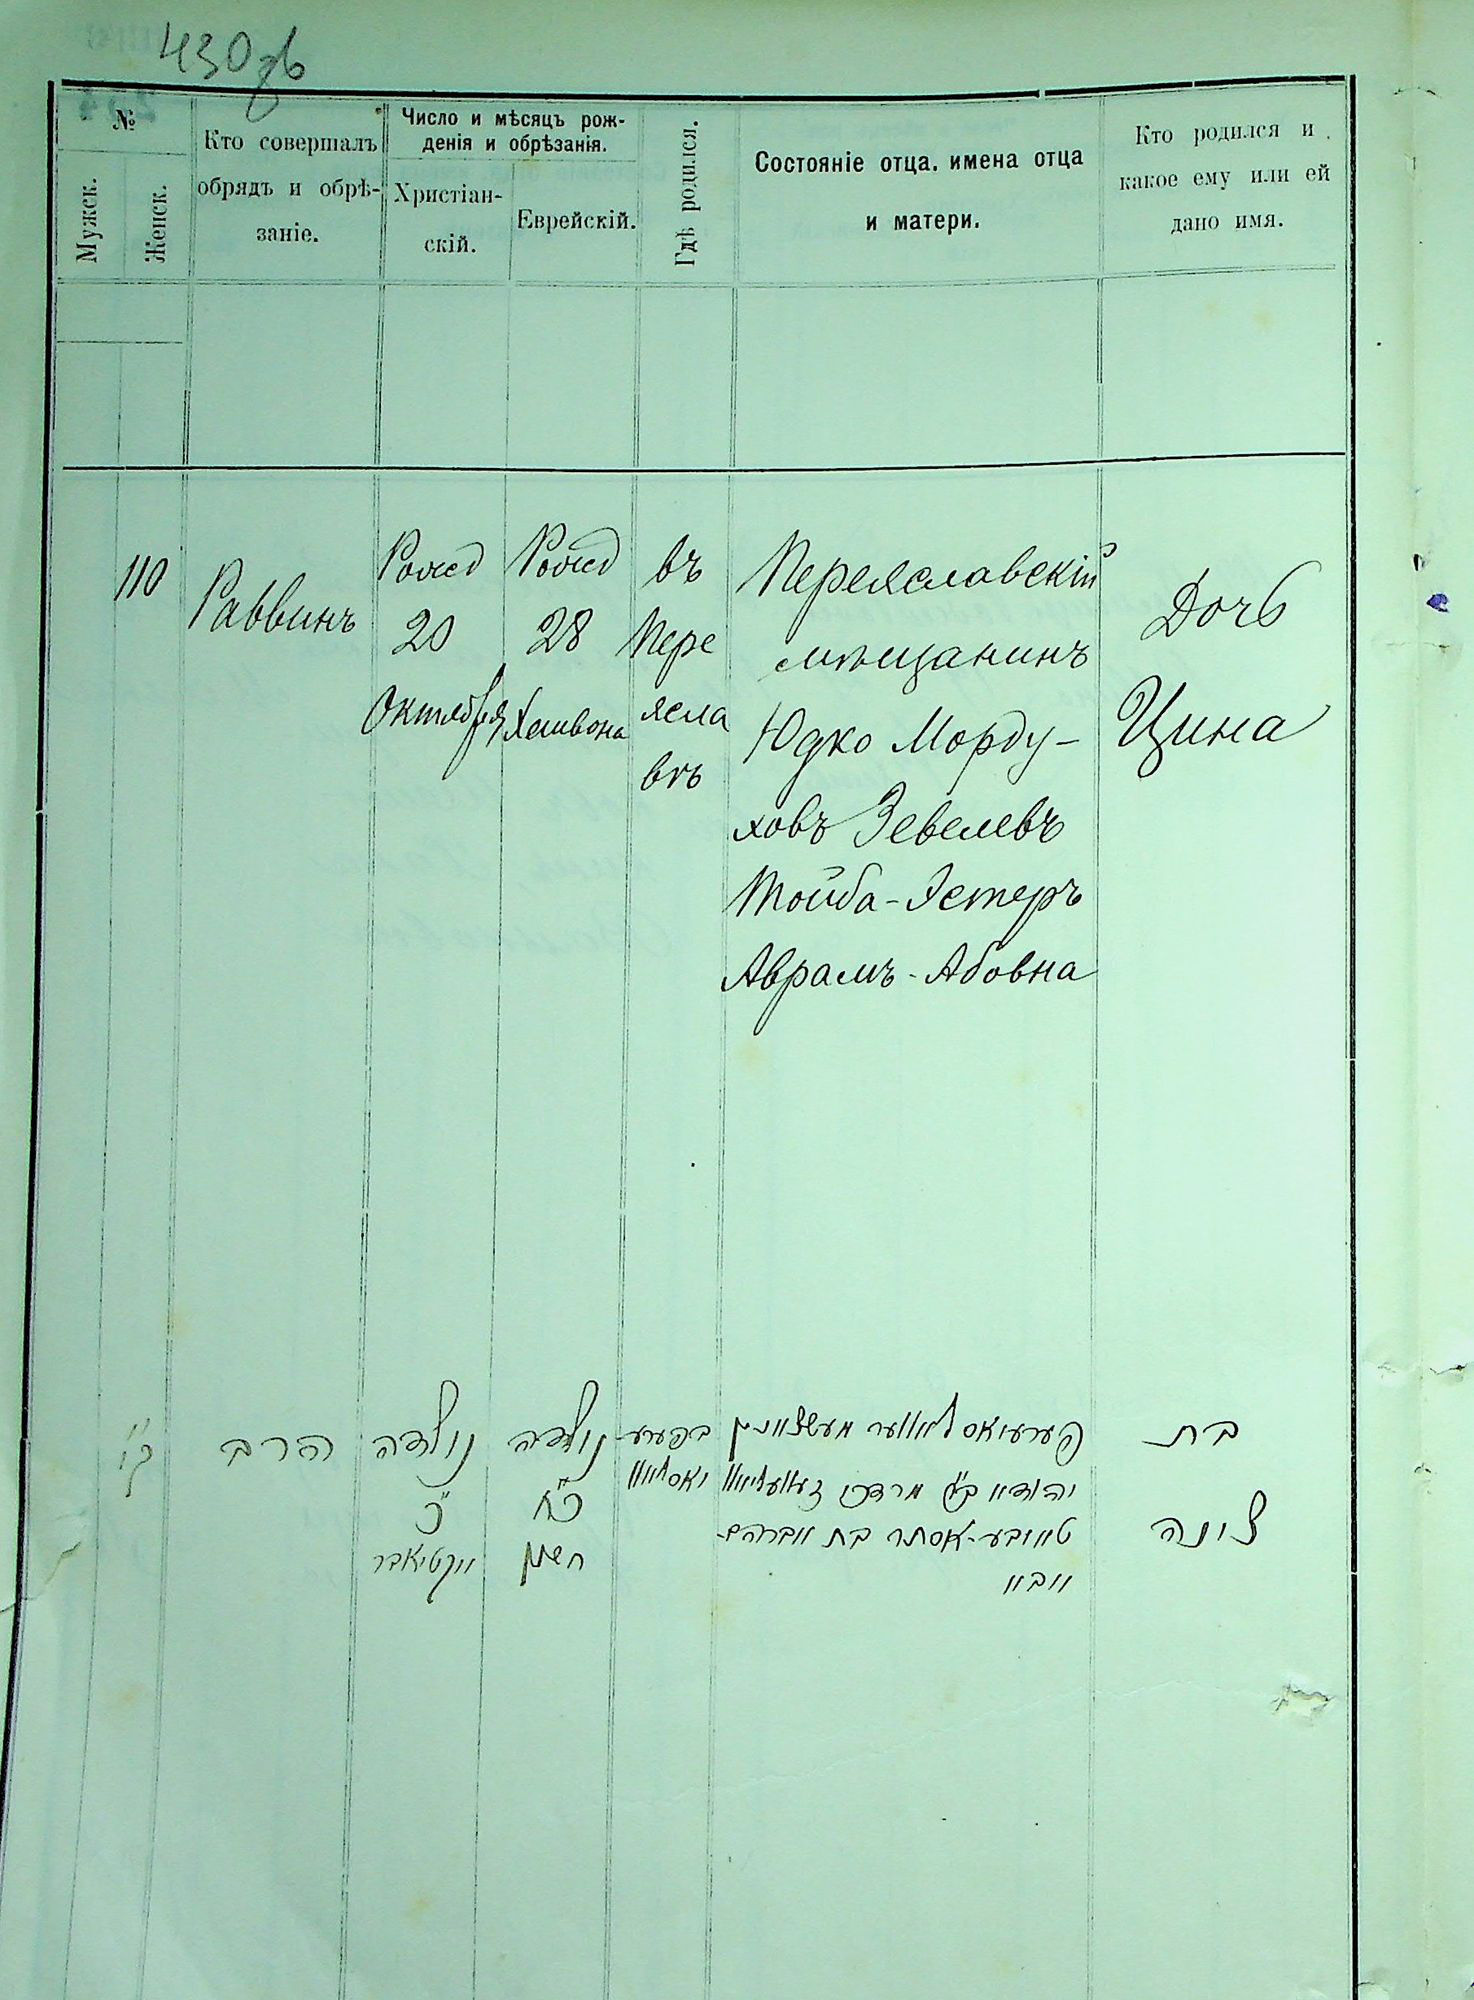 430 об
№
Мужск.
Женск.
Кто совершалъ
обрядъ и обрѣ-
заніе.
Число и мѣсяцъ рож-
денія и обрѣзанія.
Христіан-
скій.
Еврейскій.
Гдѣ родился.
Состояніе отца. имена отца
и матери.
Кто родился и
какое ему или ей
дано имя.
110
Раввинъ
Рожд
20
Октября
Рожд
28
Хешвона
въ
Пере
ясла
вѣ
Переяславскій
мѣщанинъ
ЮдкоМорду-
ховъ Зевелевъ
Тойба-Эстеръ
Аврамъ-Абовна
Дочь
Цина
ק״י
הרב
נולדה
כ״
אקטיאבר
נולדה
כ״ח
חשון
בפערע-
יאסלאוו
פערעיאסלאווער מעשצאנין
יהודא ב״ר מרדכי זעוועליוו
טויבע-אסתר בת אברהם-
אבא
בת
צינה